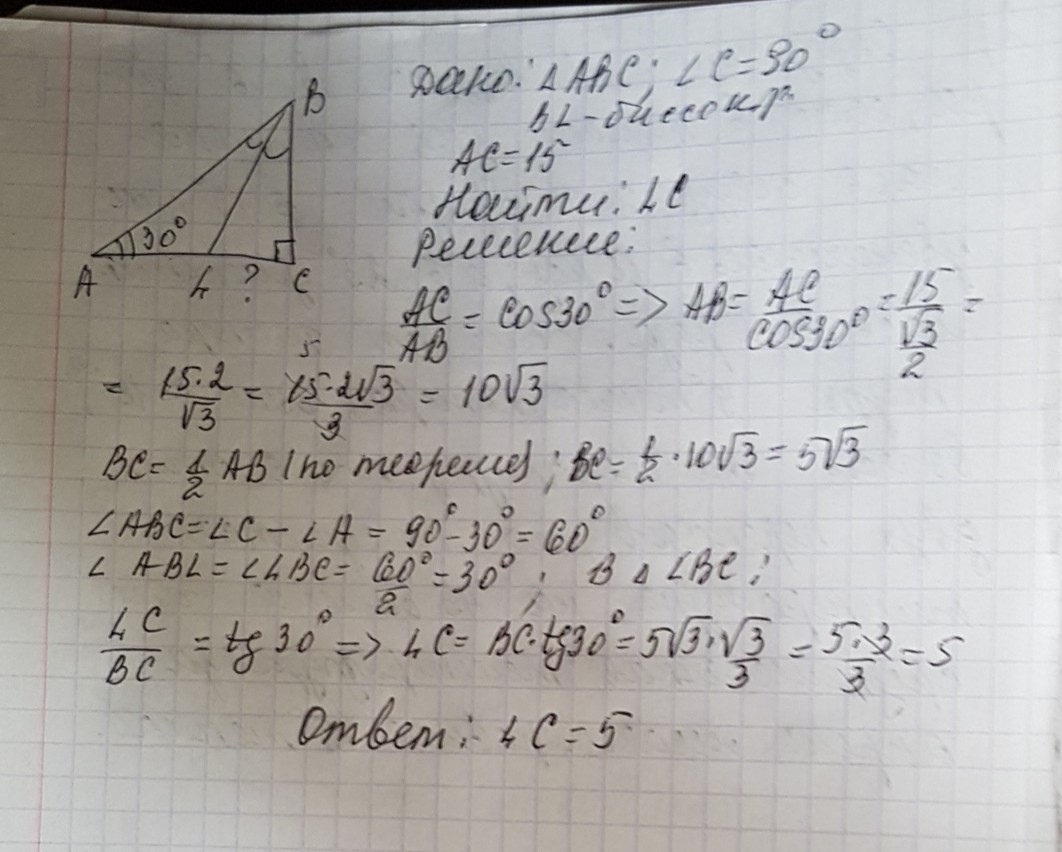 Дано: ΔABC; ∠C=90°
BL-биссектр.
AC=15
Найти: LC
Решение:
B
30°
A L ? C
AC/AB = cos30° => AB = AC/cos30° = 15/(√3/2) =
= 15·2/√3 = 15·2√3/3 = 10√3
5
BC = 1/2 AB (по теореме); BC = 1/2 · 10√3 = 5√3
∠ABC = ∠C − ∠A = 90° − 30° = 60°
∠ABL = ∠LBC = 60°/2 = 30°; В Δ LBC;
LC/BC = tg 30° => LC = BC·tg30° = 5√3·√3/3 = 5·3/3 = 5
Ответ: LC = 5